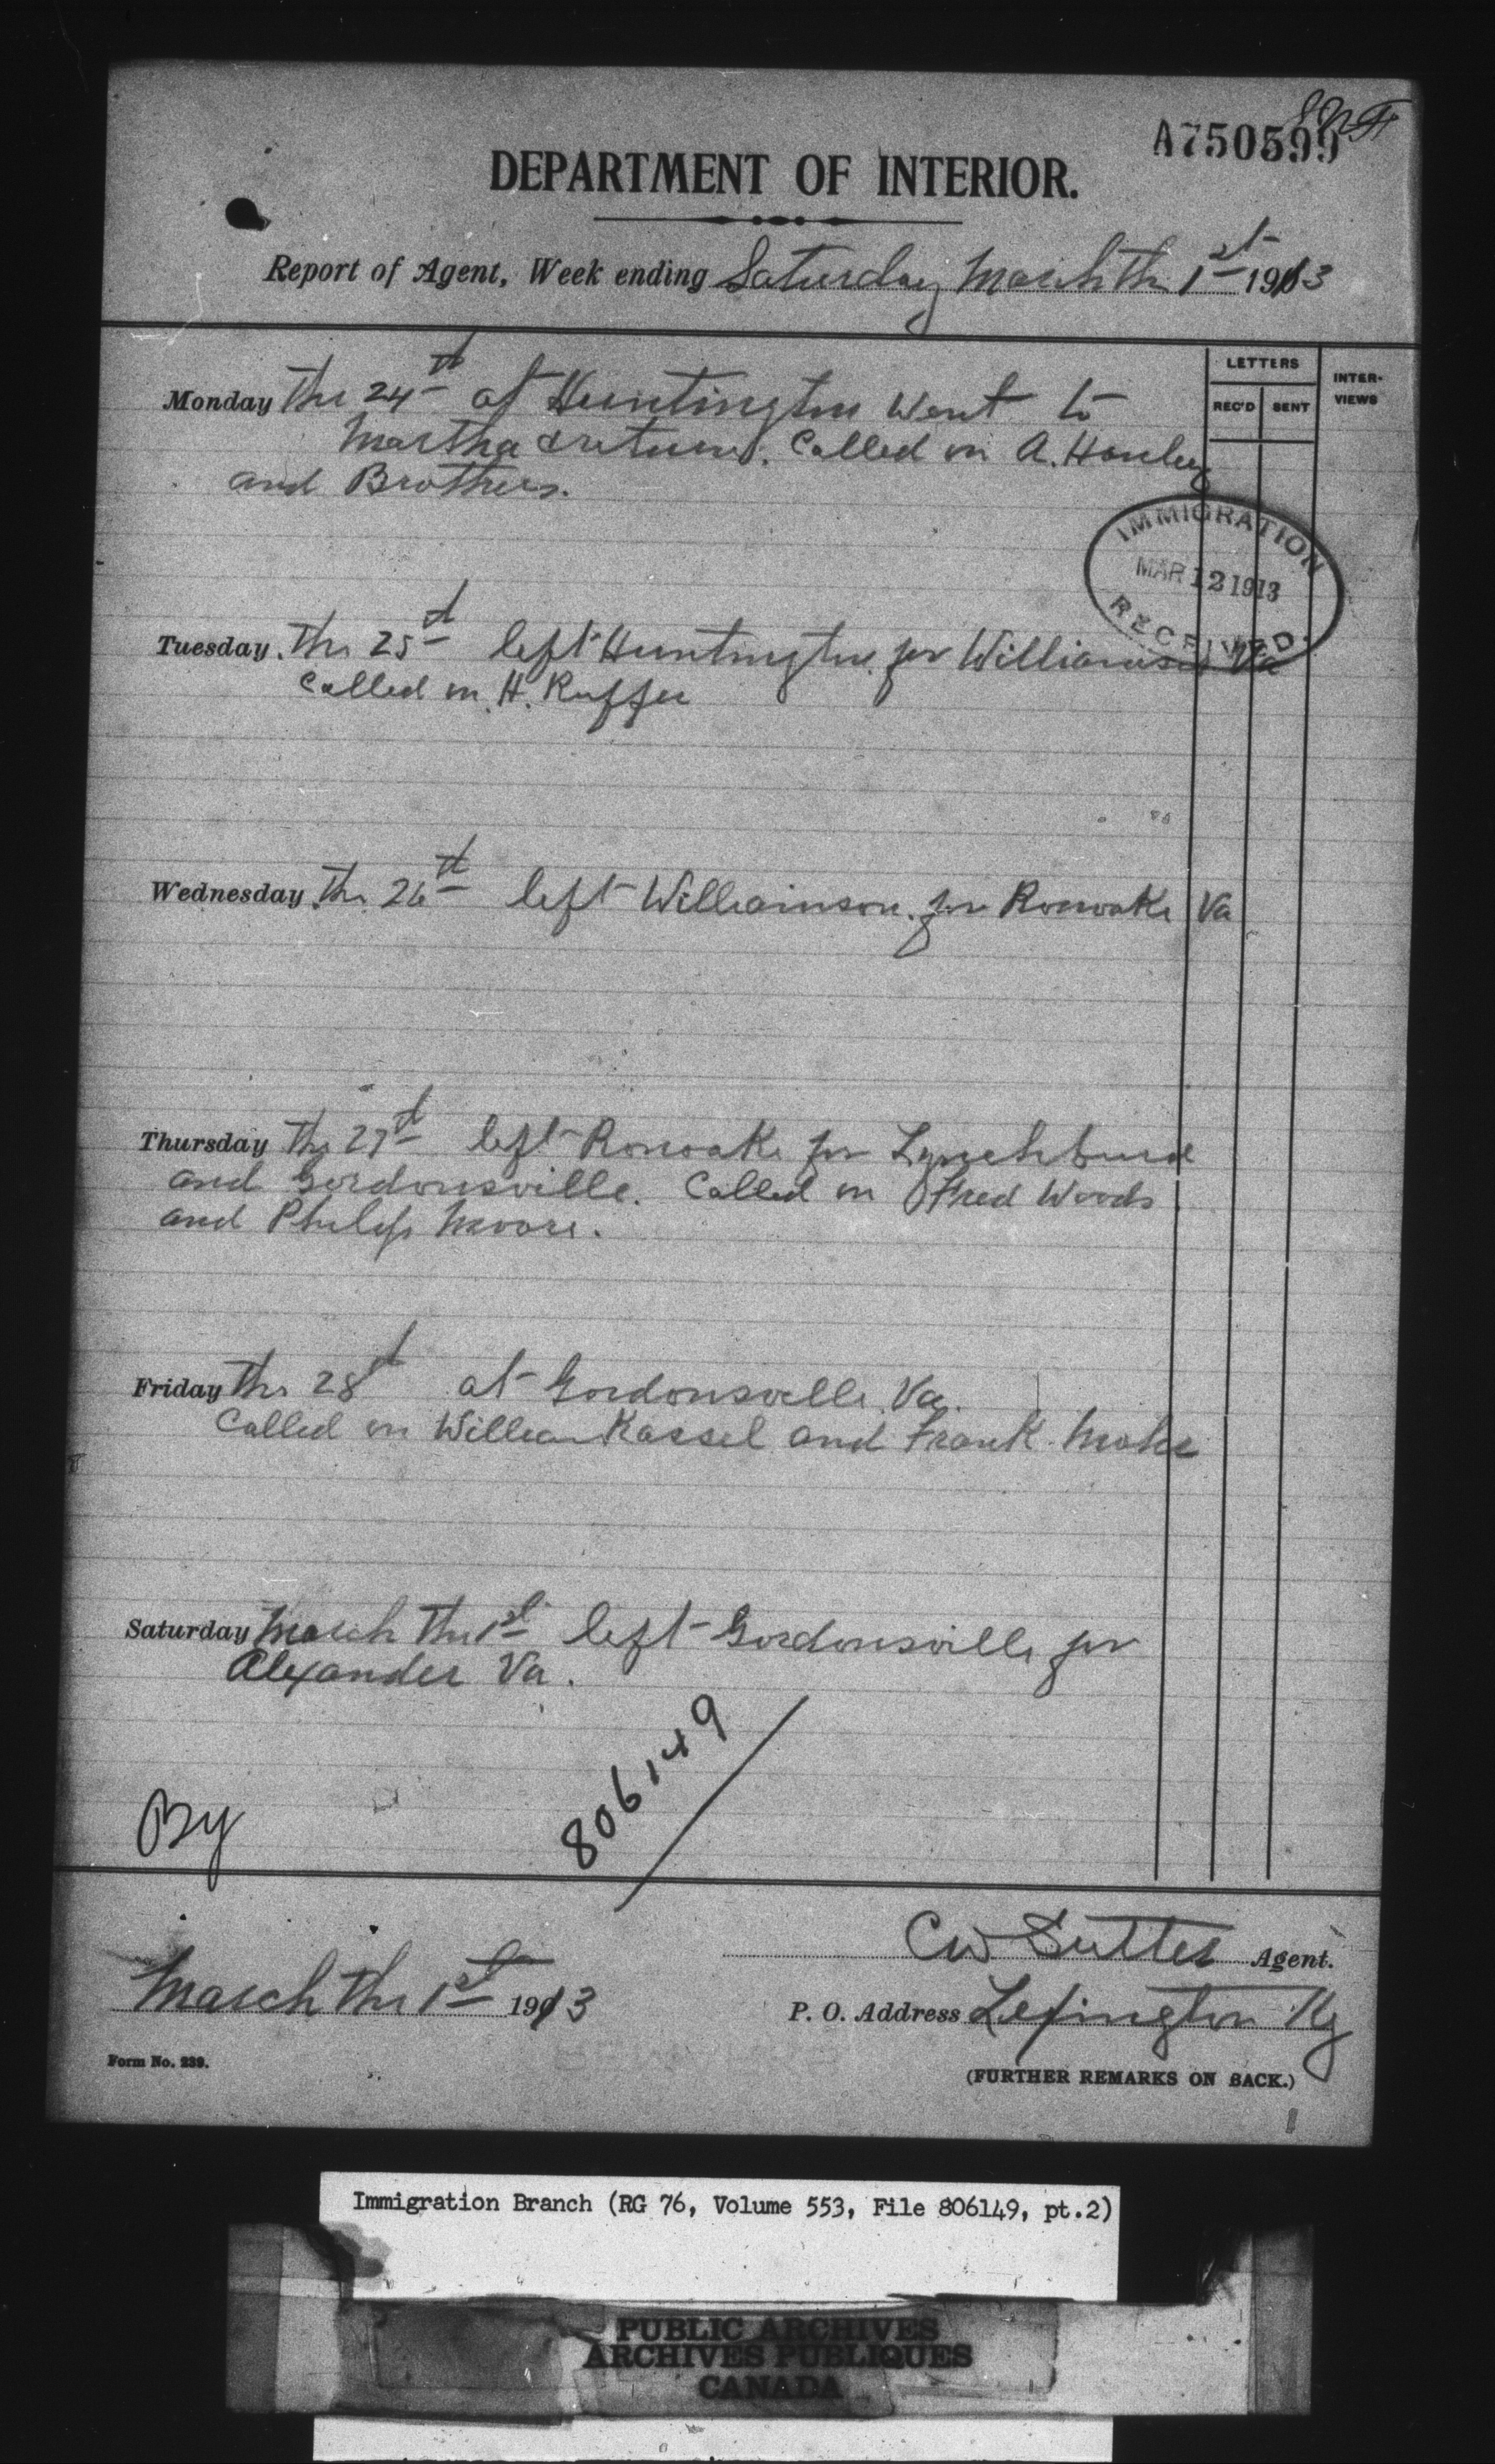 A750599
DEPARTMENT OF INTERIOR.
Report of Agent, Week ending Saturday March the 1st 1913
LETTERS
REC'D SENT
INTER-VIEWS
Monday the 24th at Huntington went to
Martha & return. Called on A.
and Brothers.
IMMIGRATION
MAR 12 1913
RECEIVED.
Tuesday. the 25th left Huntington for Williamson Va
Called on H. Ruffer
Wednesday. the 26th left Williamson for Ronoake Va
Thursday the 27th left Ronoake for
and Gordonsville. Called on Fred Woods
and Philip Moore.
Friday the 28th at Gordonsville Va.
Called on William Kassel and Frank
Saturday March the 1st left Gordonsville for
Alexander Va.
806149
By
CW Sutter Agent.
March the 1st 1913
P. O. Address Lexington Ky
Form No. 239.
(FURTHER REMARKS ON BACK.)
Immigration Branch (RG 76, Volume 553, File 806149, pt.2)
PUBLIC ARCHIVES
ARCHIVES PUBLIQUES
CANADA